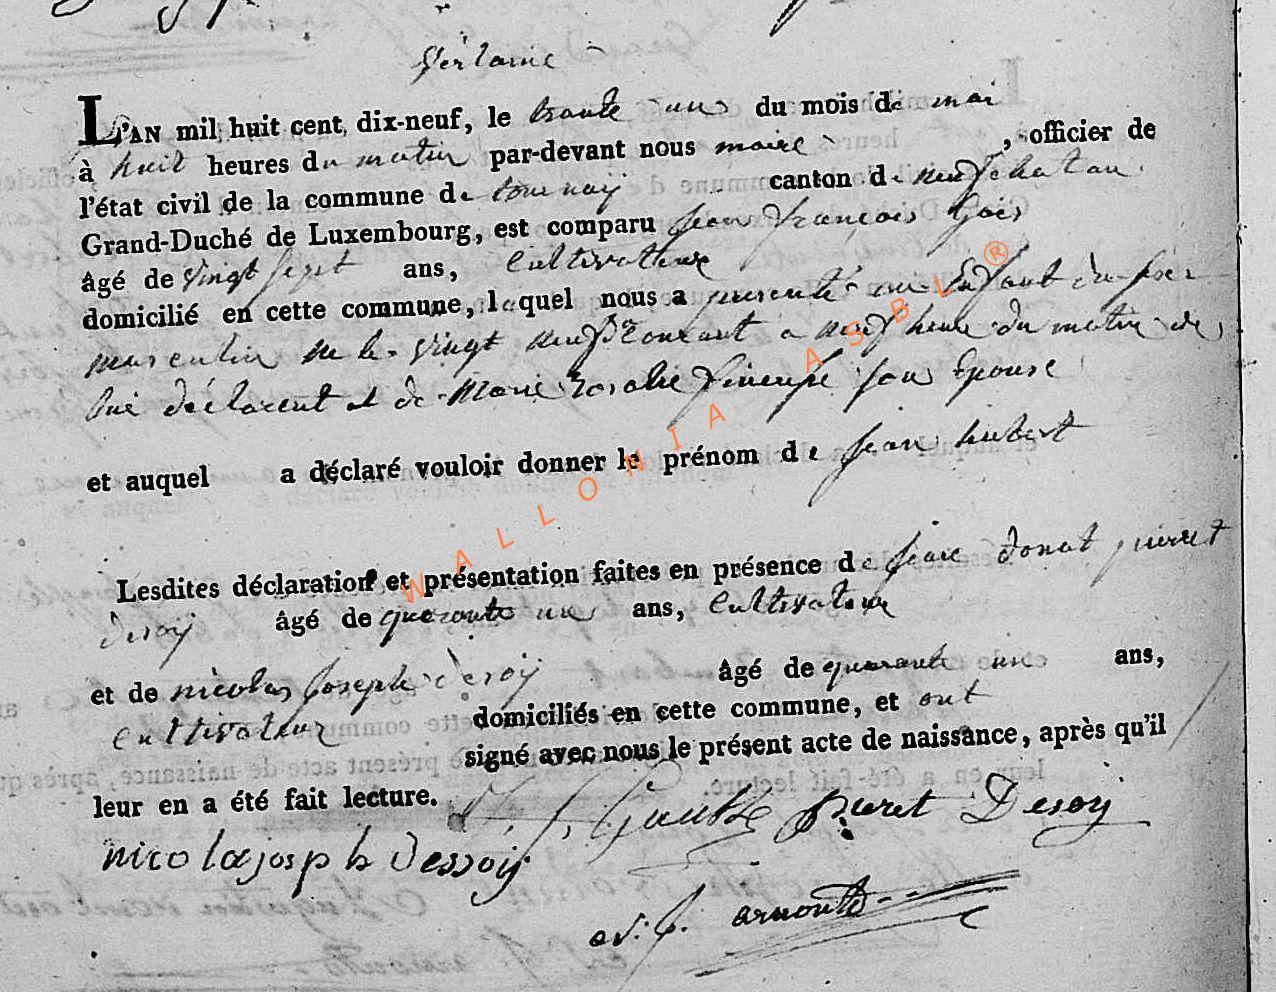 Verlaine
L'AN mil huit cent dix-neuf, le trante un du mois de mai
à huit heures du matin par-devant nous maire, officier de
l'état civil de la commune de tournay canton de neufchatau
Grand-Duché de Luxembourg, est comparu jean françois
âgé de vingt sept ans, Cultivateur
domicilié en cette commune, lequel nous a presenté un Enfant du sex
masculin ne le vingt neuf courant a neuf heure du matin de
lui déclarent et de Marie rosalie son Epouse
et auquel a déclaré vouloir donner le prénom de jean hubert
Lesdites déclaration et présentation faites en présence de jean donat pierret
deroy âgé de quaranto un ans, Cultivateur
et de nicolas Joseph deroy âgé de quarante un ans,
Cultivateur domiciliés en cette commune, et ont
signé avec nous le présent acte de naissance, après qu'il
leur en a été fait lecture.
piret Desoy
nicola josph dessoy
arnould
WALLONIA ASBL ®